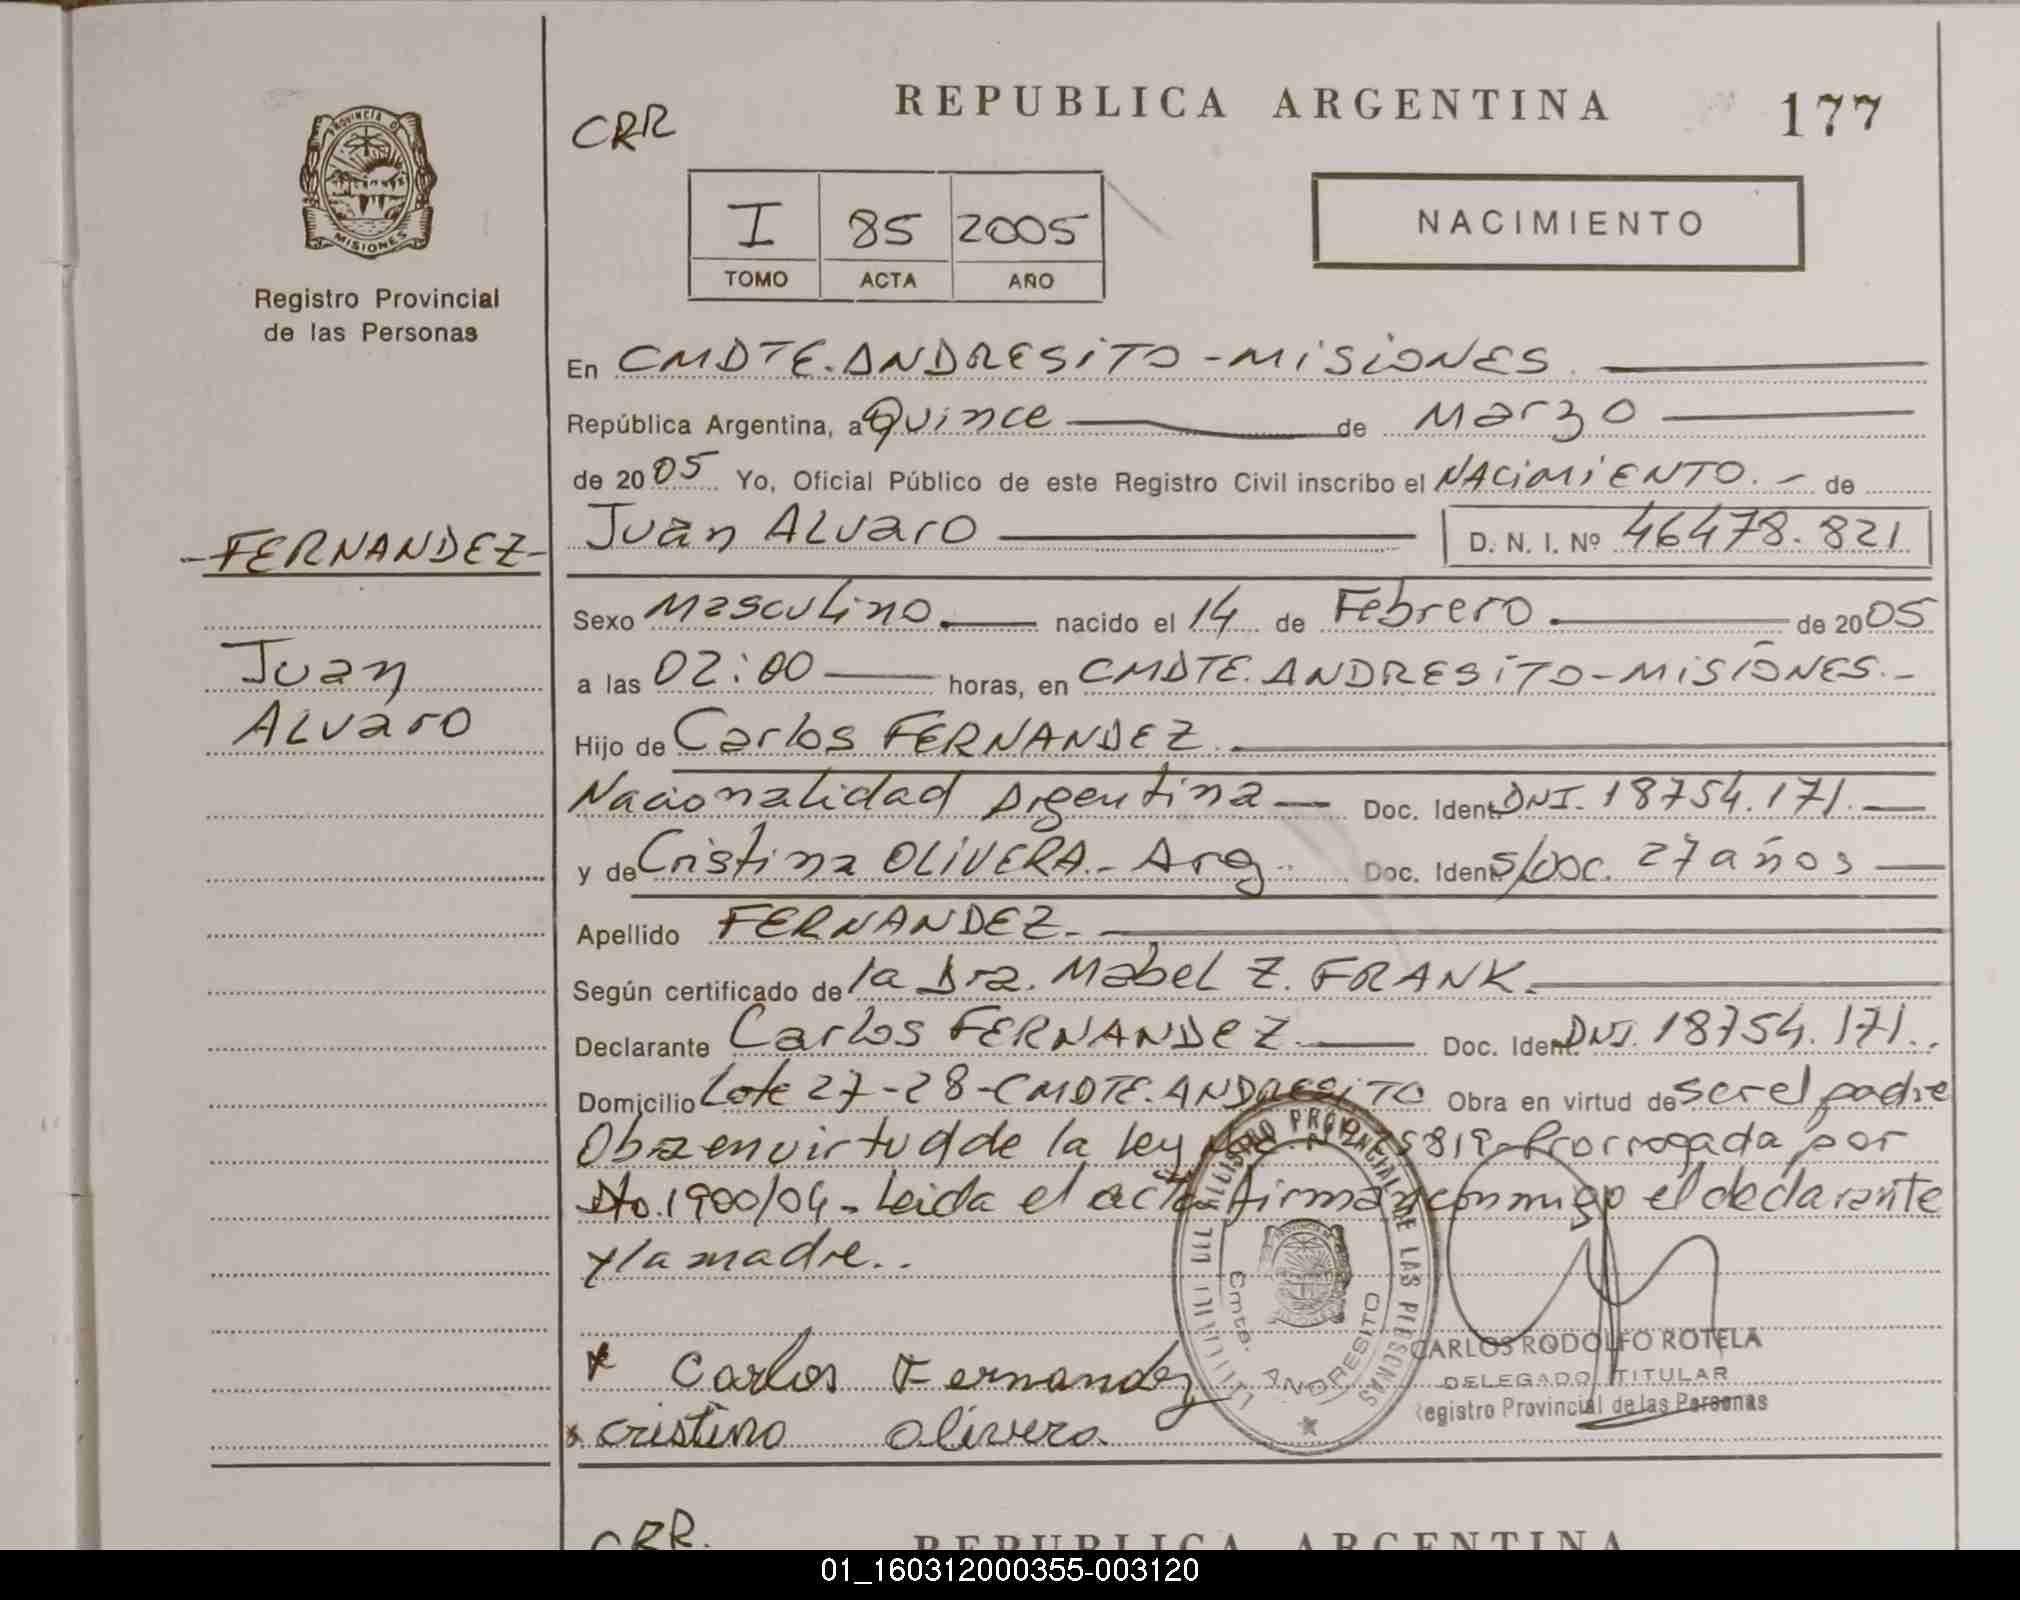 PROVINCIA D
MISIONES
Registro Provincial
de las Personas
FERNANDEZ
Juan
ALVaro
CRR
REPUBLICA ARGENTINA
177
I 85 2005
TOMO ACTA AÑO
NACIMIENTO
En CMDTE. ANDRESITO - MISIONES.
República Argentina, a Quince de Marzo
de 2005 Yo, Oficial Público de este Registro Civil inscribo el NACIMIENTO. - de
Juan ALVaro D. N. I. Nº 46478.821
Sexo Masculino nacido el 14 de Febrero de 2005
a las 02:00 horas, en CMDTE. ANDRESITO - MISIONES. -
Hijo de Carlos FERNANDEZ
Nacionalidad Argentina Doc. Ident. DNI. 18754.171.
y de Cristina OLIVERA.- Arg. Doc. Ident. S/DOC. 27 años
Apellido FERNANDEZ.
Según certificado de la Dra. Mabel Z. FRANK.
Declarante Carlos FERNANDEZ. Doc. Ident. DNI. 18754.171.
Domicilio Lote 27-28-CMDTE. ANDRESITO Obra en virtud de ser el padre
Obra en virtud de la ley 25819 - Prorrogada por
Dto. 1900/04 - Leida el acta firman conmigo el declarante
y la madre..
DEL REGISTRO PROVINCIAL DE LAS PERSONAS
Cmte. ANDRESITO
x Carlos Fernandez
x cristina olivera.
CARLOS RODOLFO ROTELA
DELEGADO TITULAR
Registro Provincial de las Personas
CRR.
REPUBLICA ARGENTINA
01_160312000355-003120